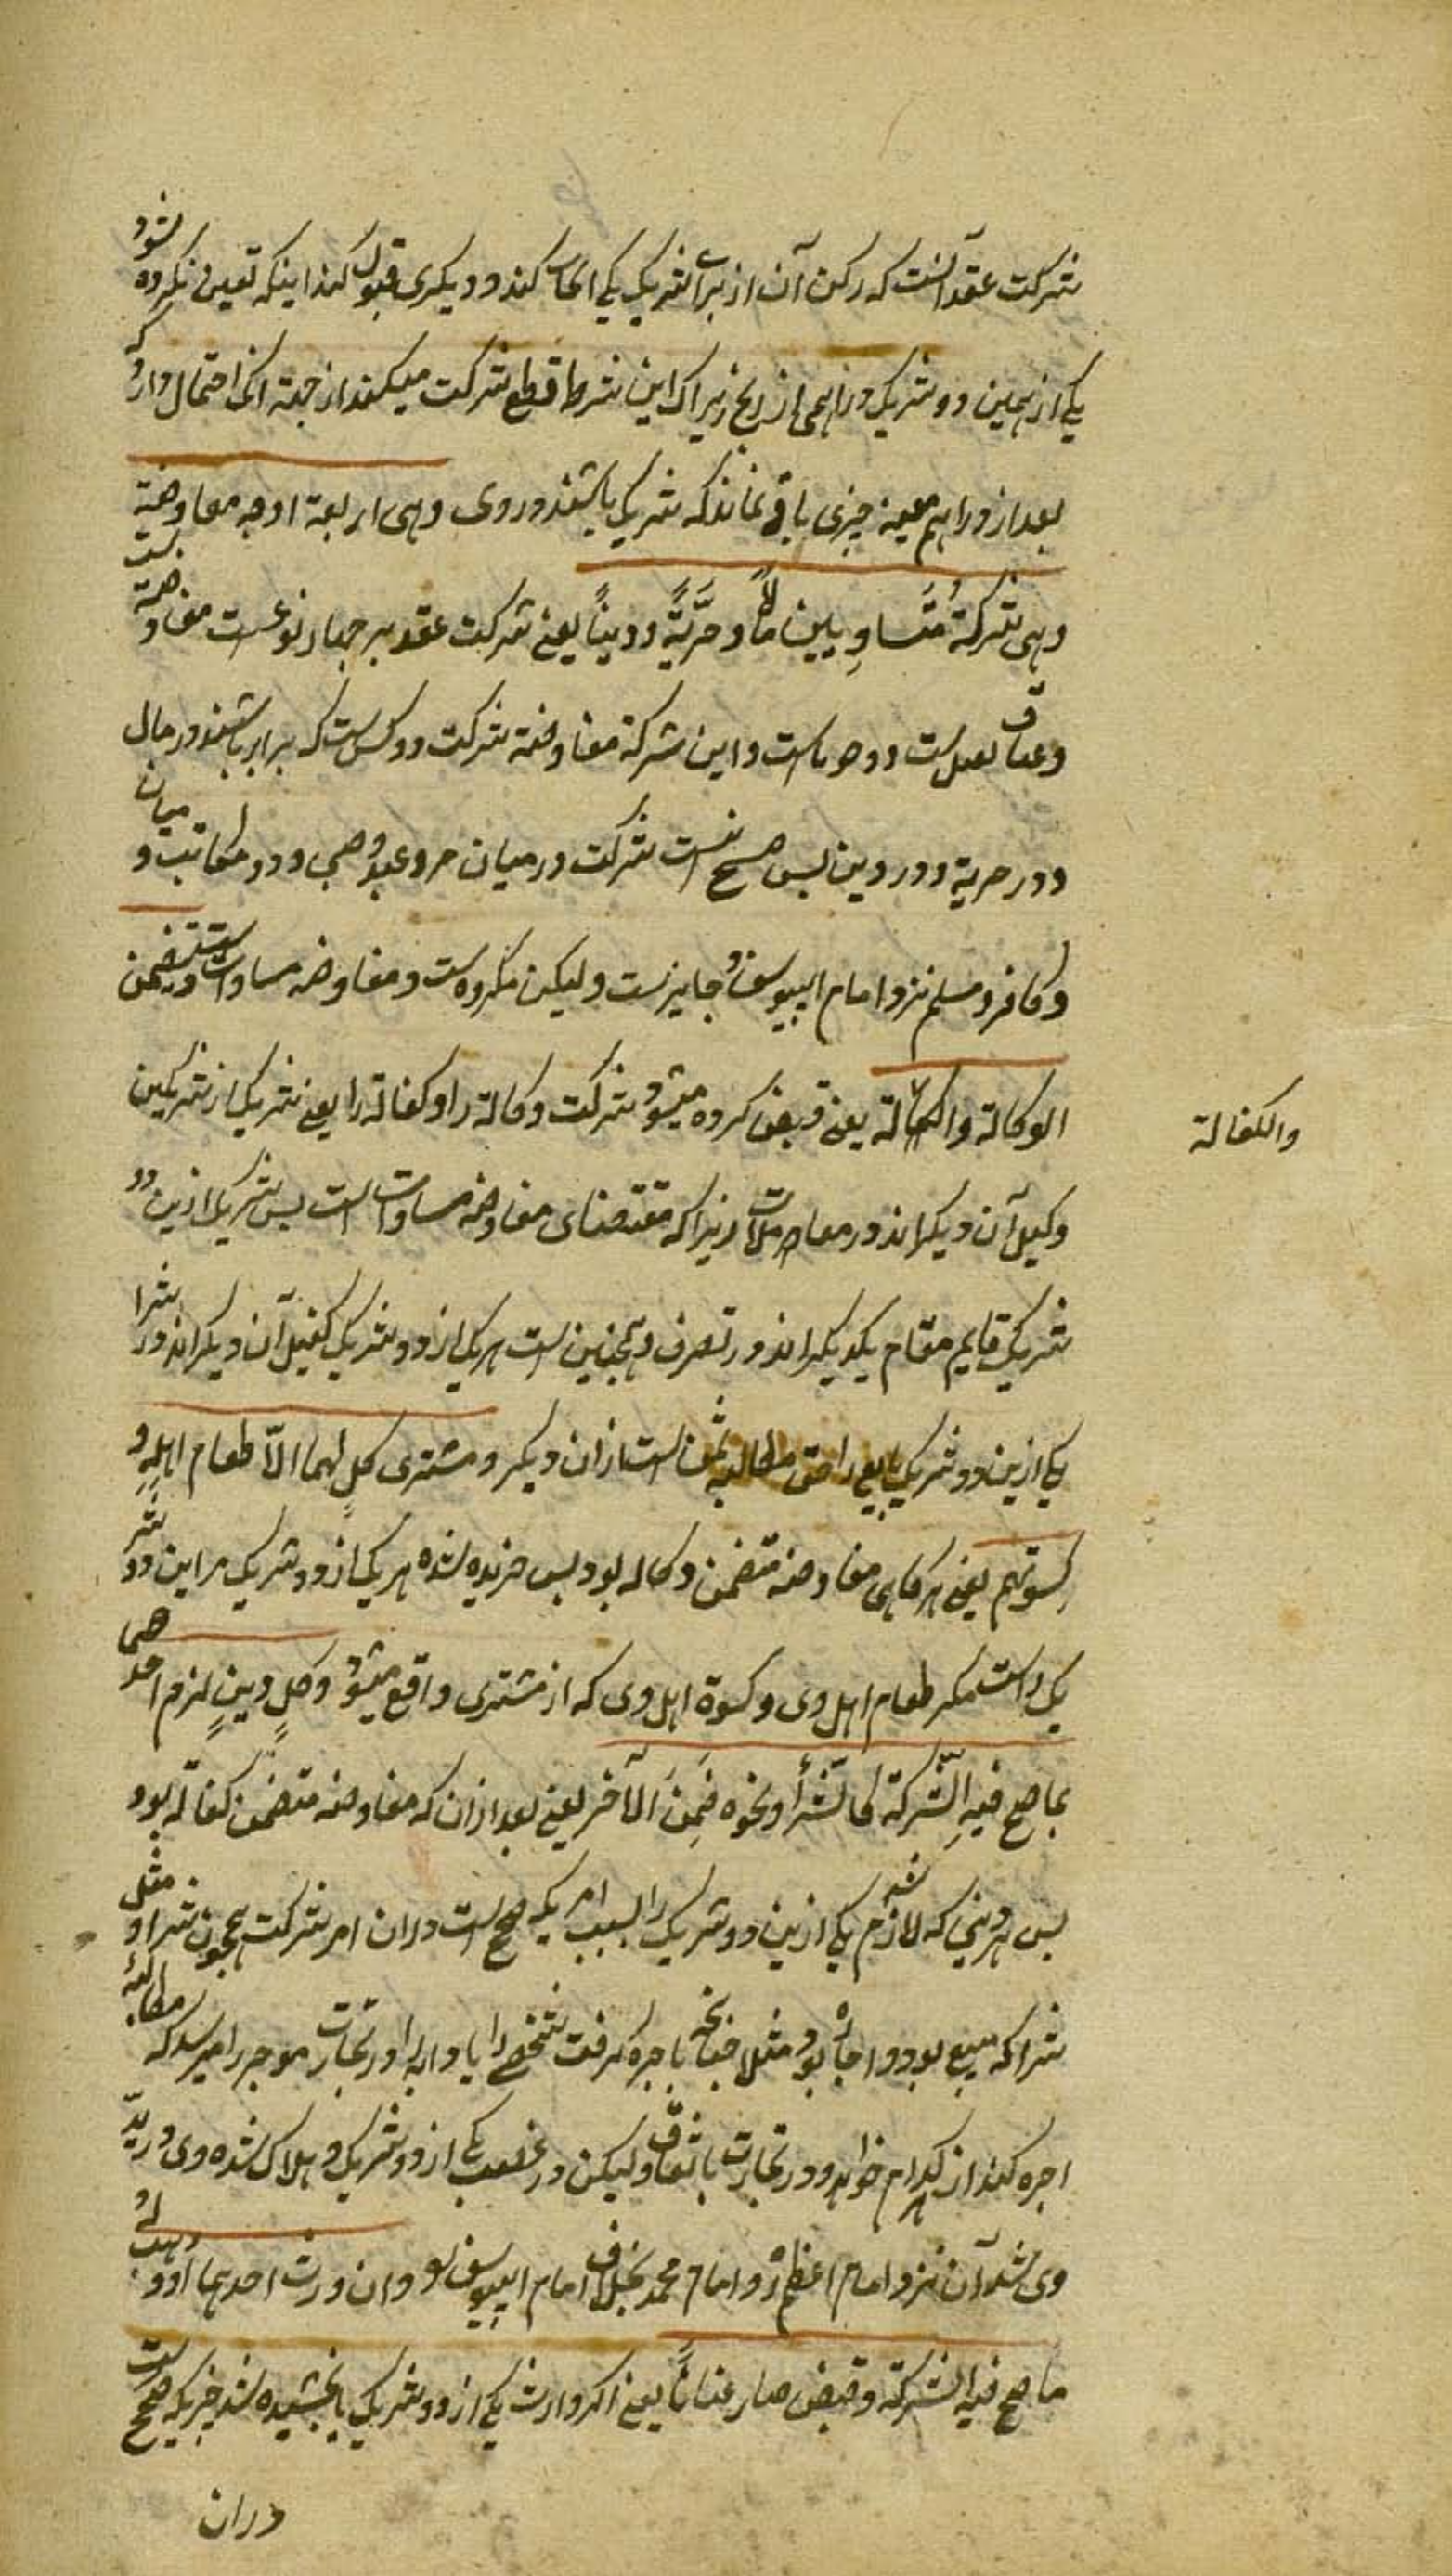 شرکت عقد آنست که رکن آن از برای شریک یکی ایجاب کند و دیکری قبول کند اینکه تعیین نکرده شود
یکی از همین دو شریک دراهمی از ربح زیراک این شرط قطع شرکت میکند از جهة انک احتمال دارد که
بعد از دراهم معینه چیزی باقی نماند که شریک باشند در وی وهی اربعة اوجه مفاوضة
وهی شرکة مُتَساوِیین مالًا وحرّیّةً ودینًا یعنی شرکت عقد بر چهار نوعست مفاوضة است
وعنان و تقبل است و وجوه است و این شرکة مفاوضة شرکت دو کس است که برابر باشند در مال
و در حریة و در دین پس صحیح نیست شرکت در میان حر و عبد و صبی و در مکاتب و میان
و کافر و مسلم نزد امام ابییوسف جایزست ولیکن مکروه است و مفاوضه مساوات است وتتضمن
الوکالة والکفالة یعنی قبض کرده میشود شرکت وکالة را و کفالة را یعنی شریک از شریکین
وکیل آن دیکراند در معاملات زیراکه مقتضای مفاوضه مساوات است پس شریک ازین دو
شریک قایم مقام یکدیکراند در تصرف و همچنین است هر یک از دو شریک کفیل آن دیکراند در شرا
یکی ازین دو شریک بایع را حق مطالبه ثمن است از آن دیکر و مشتری کلٍ لهما الّا طعام اهله و
کسوتهم یعنی هرکاهی مفاوضه متضمن وکاله بود پس خریده شده هر یک از دو شریک مر این دو شر
یک راست مکر طعام اهل وی و کسوة اهل وی که از مشتری واقع میشود وکلّ دینٍ لزم احدهما
بما صح فیهِ الشّرکة کالشّرأ ونحوه ضَمِنَ الآخر یعنی بعد از آن که مفاوضه متضمن کفاله بود
پس هر دینی که لازم شد یکی ازین دو شریک را بسبب امریکه صحیح است در آن امر شرکت همچون شرا و مثل
شرا که مبیع بود و اجاره بود مثلا چنانچه باجره کرفت شخصی را یا دابه را در تجارت موجر را میرسد که مطالبهٔ
اجره کند از هر کدام خواهد و در تجارت باتفاق ولیکن در غصب یکی از دو شریک و هلاک شده وی در ید
وی شد آن نزد امام اعظم و امام محمد بخلاف امام ابییوسف وان ورث احدهما او وهب له
ما صح فیه الشرکة وقبض صار عنانًا یعنی اکر وارث یکی از دو شریک یا بخشیده شد چیزیکه صحیح است
دران
والکفالة